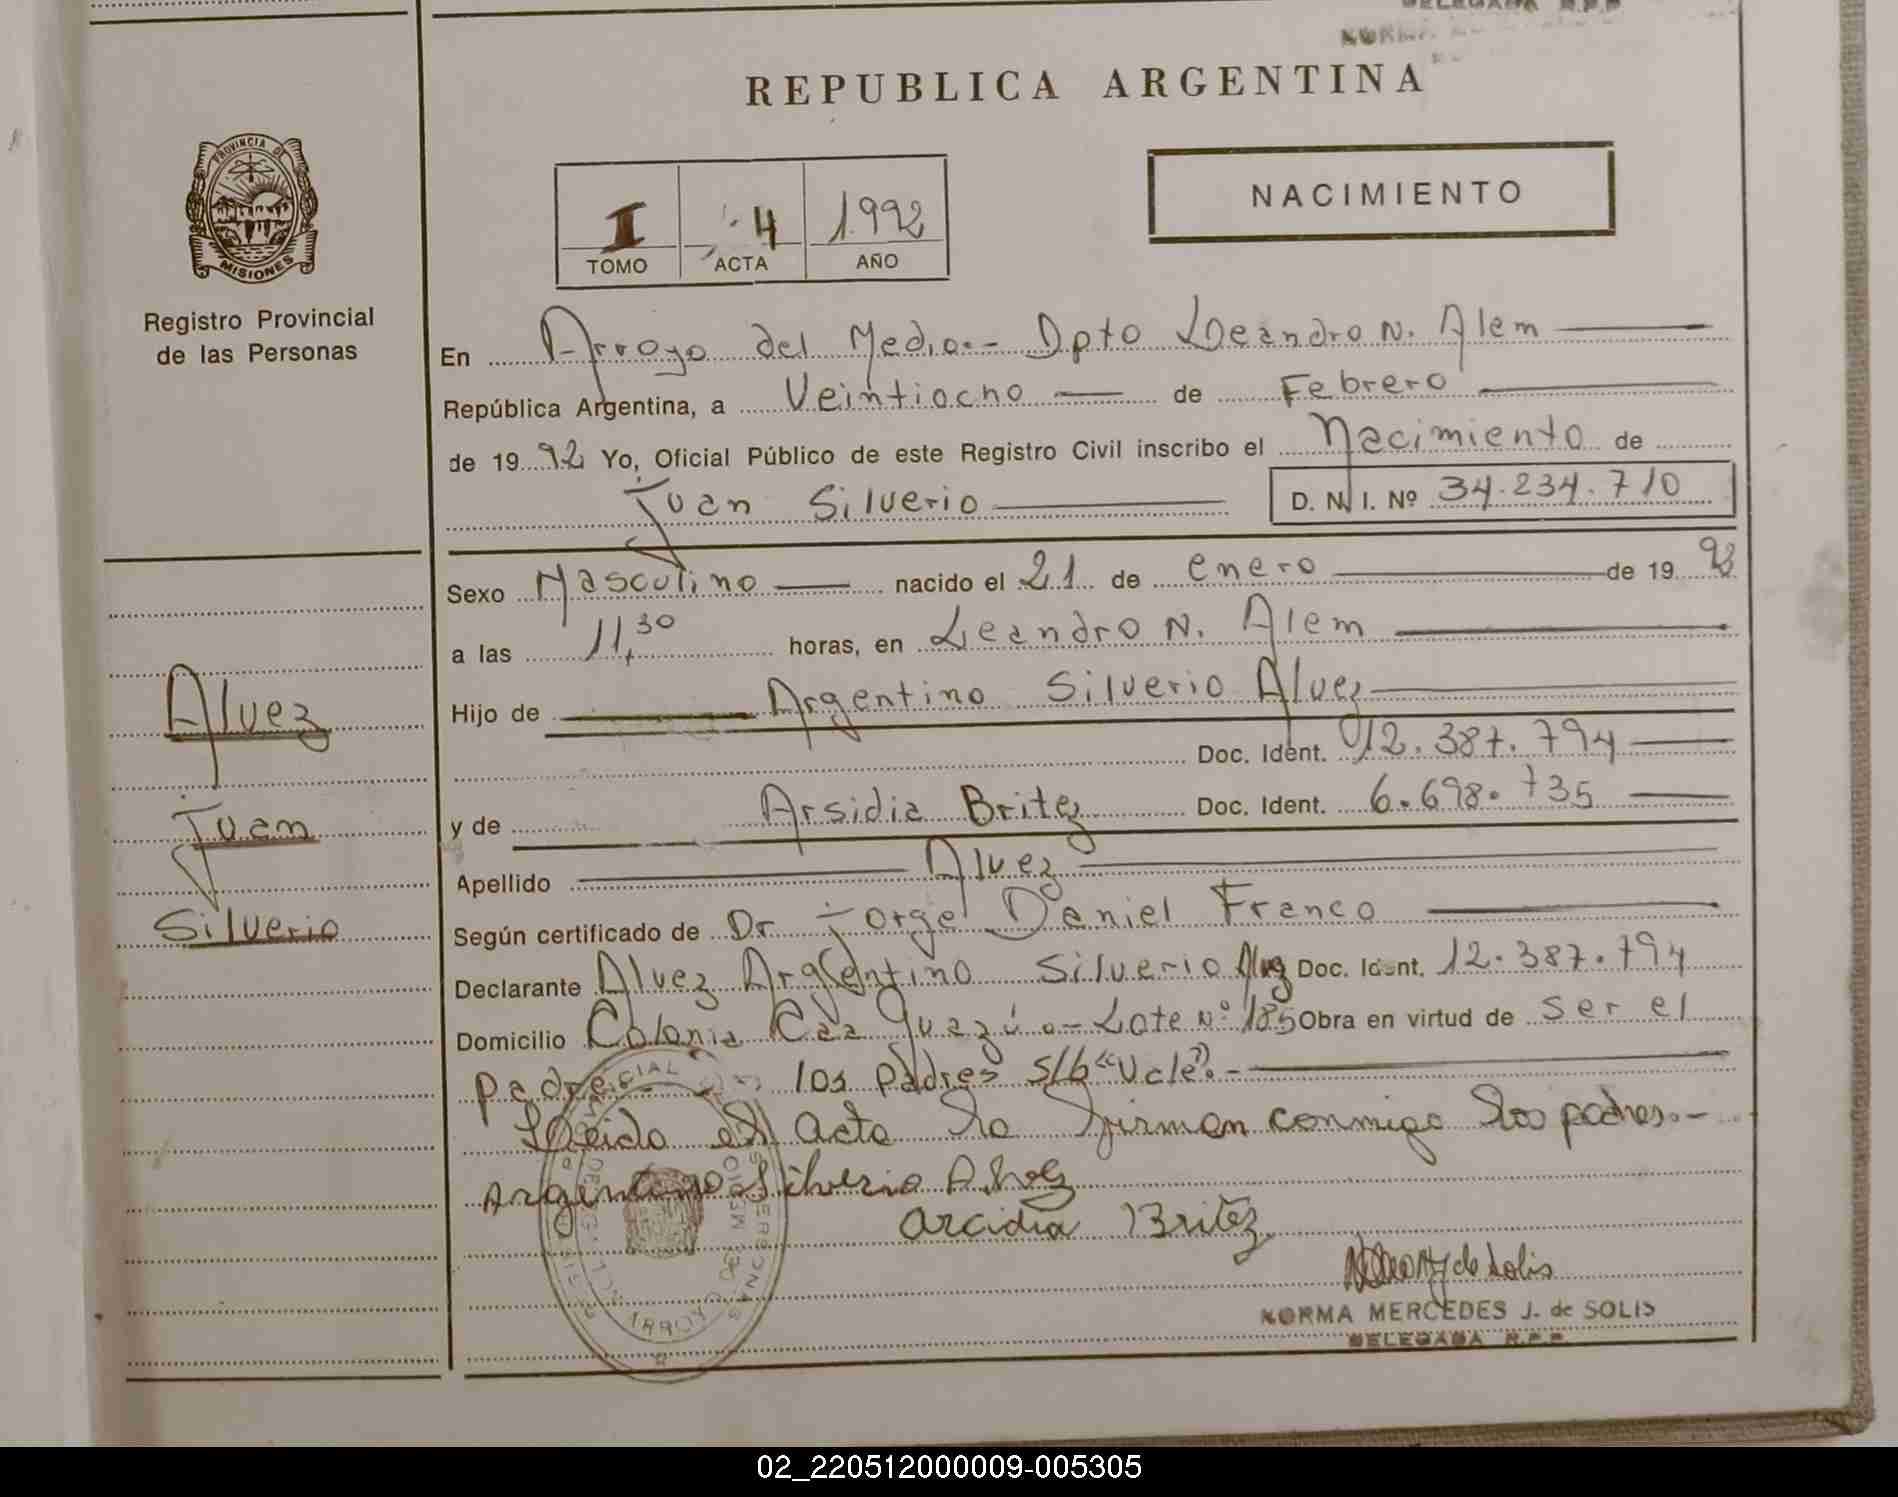 REPUBLICA ARGENTINA
PROVINCIA DE
MISIONES
Registro Provincial
de las Personas
I 4 1992
TOMO ACTA AÑO
NACIMIENTO
En Arroyo del Medio.- Dpto Leandro N. Alem
República Argentina, a Veintiocho de Febrero
de 1992 Yo, Oficial Público de este Registro Civil inscribo el Nacimiento de
Juan Silverio D. N. I. Nº 34.234.710
Sexo Masculino nacido el 21 de enero de 1992
a las 11,30 horas, en Leandro N. Alem
Hijo de Argentino Silverio Alvez
Doc. Ident. 12.387.794
y de Arsidia Britez Doc. Ident. 6.698.735
Apellido Alvez
Según certificado de Dr Jorge Daniel Franco
Declarante Alvez Argentino Silverio Doc. Ident. 12.387.794
Domicilio Colonia Caa Guazú.- Lote Nº 185 Obra en virtud de ser el
padre los padres s/b "Vale".-
Leido el Acta la firman conmigo los padres.-
Argentino Silverio Alvez
arcidia Britez
de Solis
NORMA MERCEDES J. de SOLIS
DELEGADA R.P.P.
Alvez
Juan
Silverio
02_220512000009-005305